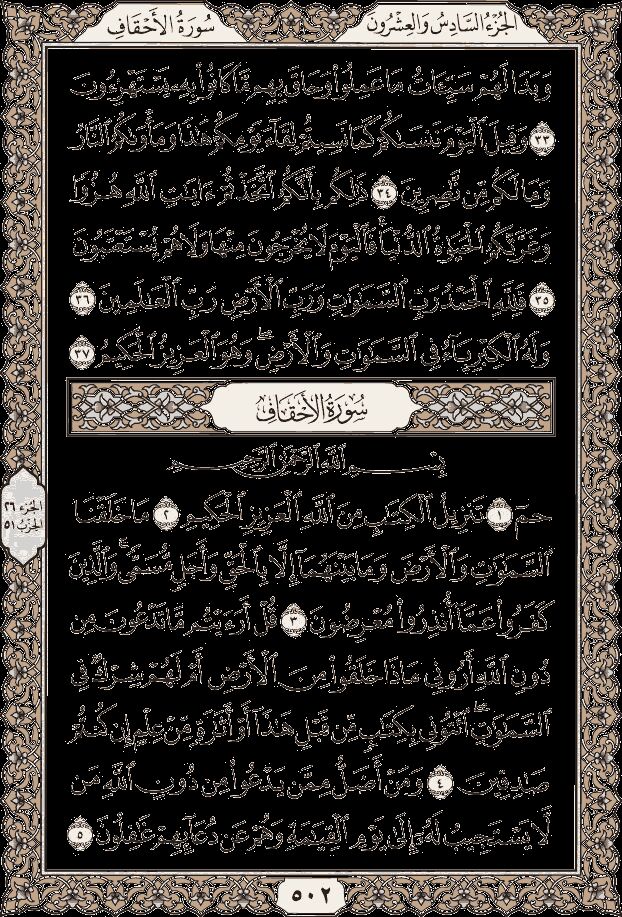 الجزء السادس والعشرون
سورة الأحقاف
وَبَدَا لَهُمْ سَيِّـَٔاتُ مَا عَمِلُوا۟ وَحَاقَ بِهِم مَّا كَانُوا۟ بِهِۦ يَسْتَهْزِءُونَ
٣٣ وَقِيلَ ٱلْيَوْمَ نَنسَىٰكُمْ كَمَا نَسِيتُمْ لِقَآءَ يَوْمِكُمْ هَٰذَا وَمَأْوَىٰكُمُ ٱلنَّارُ
وَمَا لَكُم مِّن نَّٰصِرِينَ ٣٤ ذَٰلِكُم بِأَنَّكُمُ ٱتَّخَذْتُمْ ءَايَٰتِ ٱللَّهِ هُزُوًا
وَغَرَّتْكُمُ ٱلْحَيَوٰةُ ٱلدُّنْيَا ۚ فَٱلْيَوْمَ لَا يُخْرَجُونَ مِنْهَا وَلَا هُمْ يُسْتَعْتَبُونَ
٣٥ فَلِلَّهِ ٱلْحَمْدُ رَبِّ ٱلسَّمَٰوَٰتِ وَرَبِّ ٱلْأَرْضِ رَبِّ ٱلْعَٰلَمِينَ ٣٦
وَلَهُ ٱلْكِبْرِيَآءُ فِى ٱلسَّمَٰوَٰتِ وَٱلْأَرْضِ ۖ وَهُوَ ٱلْعَزِيزُ ٱلْحَكِيمُ ٣٧
سُورَةُ الأَحْقَافِ
بِسْمِ ٱللَّهِ ٱلرَّحْمَٰنِ ٱلرَّحِيمِ
حمٓ ١ تَنزِيلُ ٱلْكِتَٰبِ مِنَ ٱللَّهِ ٱلْعَزِيزِ ٱلْحَكِيمِ ٢ مَا خَلَقْنَا
ٱلسَّمَٰوَٰتِ وَٱلْأَرْضَ وَمَا بَيْنَهُمَآ إِلَّا بِٱلْحَقِّ وَأَجَلٍ مُّسَمًّى ۚ وَٱلَّذِينَ
كَفَرُوا۟ عَمَّآ أُنذِرُوا۟ مُعْرِضُونَ ٣ قُلْ أَرَءَيْتُم مَّا تَدْعُونَ مِن
دُونِ ٱللَّهِ أَرُونِى مَاذَا خَلَقُوا۟ مِنَ ٱلْأَرْضِ أَمْ لَهُمْ شِرْكٌ فِى
ٱلسَّمَٰوَٰتِ ۖ ٱئْتُونِى بِكِتَٰبٍ مِّن قَبْلِ هَٰذَآ أَوْ أَثَٰرَةٍ مِّنْ عِلْمٍ إِن كُنتُمْ
صَٰدِقِينَ ٤ وَمَنْ أَضَلُّ مِمَّن يَدْعُوا۟ مِن دُونِ ٱللَّهِ مَن
لَّا يَسْتَجِيبُ لَهُۥٓ إِلَىٰ يَوْمِ ٱلْقِيَٰمَةِ وَهُمْ عَن دُعَآئِهِمْ غَٰفِلُونَ ٥
الجزء ٢٦
الحزب ٥١
٥٠٢